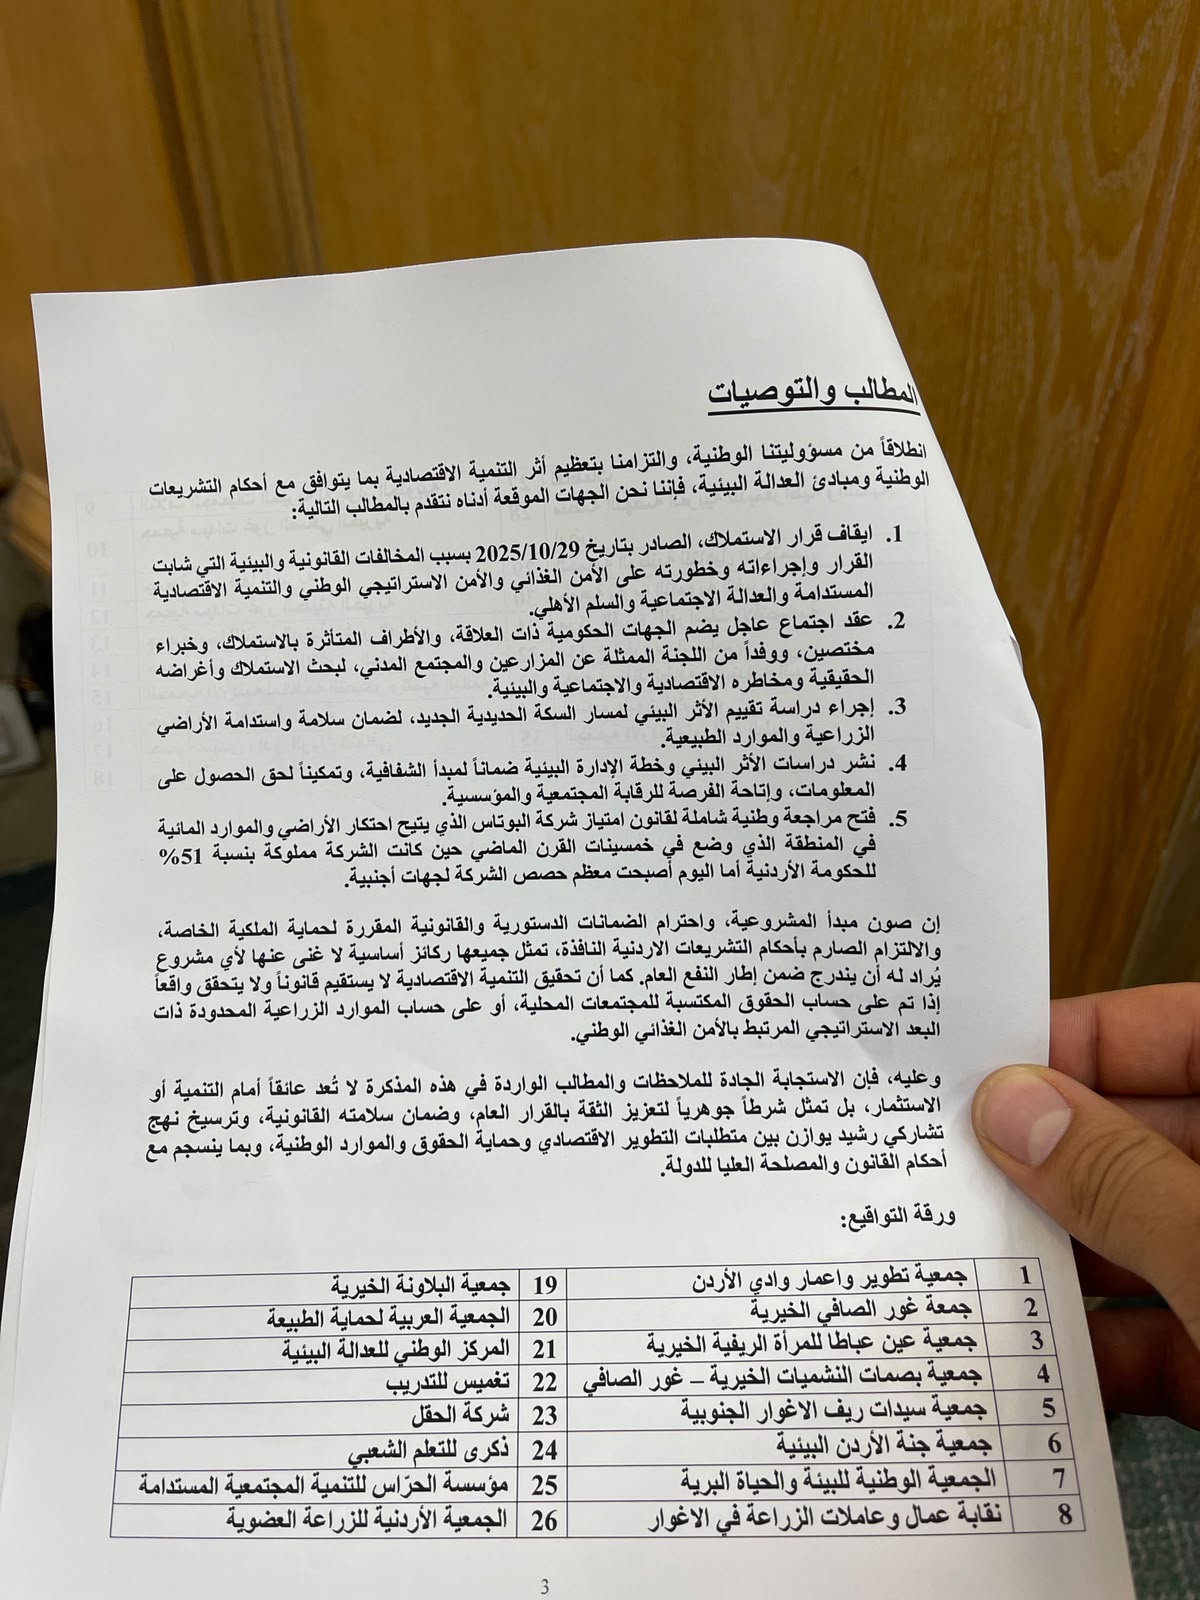 المطالب والتوصيات
انطلاقاً من مسؤوليتنا الوطنية، والتزامنا بتعظيم أثر التنمية الاقتصادية بما يتوافق مع أحكام التشريعات
الوطنية ومبادئ العدالة البيئية، فإننا نحن الجهات الموقعة أدناه نتقدم بالمطالب التالية:
1. ايقاف قرار الاستملاك، الصادر بتاريخ 2025/10/29 بسبب المخالفات القانونية والبيئية التي شابت
القرار وإجراءاته وخطورته على الأمن الغذائي والأمن الاستراتيجي الوطني والتنمية الاقتصادية
المستدامة والعدالة الاجتماعية والسلم الأهلي.
2. عقد اجتماع عاجل يضم الجهات الحكومية ذات العلاقة، والأطراف المتأثرة بالاستملاك، وخبراء
مختصين، ووفداً من اللجنة الممثلة عن المزارعين والمجتمع المدني، لبحث الاستملاك وأغراضه
الحقيقية ومخاطره الاقتصادية والاجتماعية والبيئية.
3. إجراء دراسة تقييم الأثر البيئي لمسار السكة الحديدية الجديد، لضمان سلامة واستدامة الأراضي
الزراعية والموارد الطبيعية.
4. نشر دراسات الأثر البيئي وخطة الإدارة البيئية ضماناً لمبدأ الشفافية، وتمكيناً لحق الحصول على
المعلومات، وإتاحة الفرصة للرقابة المجتمعية والمؤسسية.
5. فتح مراجعة وطنية شاملة لقانون امتياز شركة البوتاس الذي يتيح احتكار الأراضي والموارد المائية
في المنطقة الذي وضع في خمسينات القرن الماضي حين كانت الشركة مملوكة بنسبة 51%
للحكومة الأردنية أما اليوم أصبحت معظم حصص الشركة لجهات أجنبية.
إن صون مبدأ المشروعية، واحترام الضمانات الدستورية والقانونية المقررة لحماية الملكية الخاصة،
والالتزام الصارم بأحكام التشريعات الاردنية النافذة، تمثل جميعها ركائز أساسية لا غنى عنها لأي مشروع
يُراد له أن يندرج ضمن إطار النفع العام. كما أن تحقيق التنمية الاقتصادية لا يستقيم قانوناً ولا يتحقق واقعاً
إذا تم على حساب الحقوق المكتسبة للمجتمعات المحلية، أو على حساب الموارد الزراعية المحدودة ذات
البعد الاستراتيجي المرتبط بالأمن الغذائي الوطني.
وعليه، فإن الاستجابة الجادة للملاحظات والمطالب الواردة في هذه المذكرة لا تُعد عائقاً أمام التنمية أو
الاستثمار، بل تمثل شرطاً جوهرياً لتعزيز الثقة بالقرار العام، وضمان سلامته القانونية، وترسيخ نهج
تشاركي رشيد يوازن بين متطلبات التطوير الاقتصادي وحماية الحقوق والموارد الوطنية، وبما ينسجم مع
أحكام القانون والمصلحة العليا للدولة.
ورقة التواقيع:
1 جمعية تطوير واعمار وادي الأردن 19 جمعية البلاونة الخيرية
2 جمعة غور الصافي الخيرية 20 الجمعية العربية لحماية الطبيعة
3 جمعية عين عباطا للمرأة الريفية الخيرية 21 المركز الوطني للعدالة البيئية
4 جمعية بصمات النشميات الخيرية – غور الصافي 22 تغميس للتدريب
5 جمعية سيدات ريف الاغوار الجنوبية 23 شركة الحقل
6 جمعية جنة الأردن البيئية 24 ذكرى للتعلم الشعبي
7 الجمعية الوطنية للبيئة والحياة البرية 25 مؤسسة الحرّاس للتنمية المجتمعية المستدامة
8 نقابة عمال وعاملات الزراعة في الاغوار 26 الجمعية الأردنية للزراعة العضوية
3